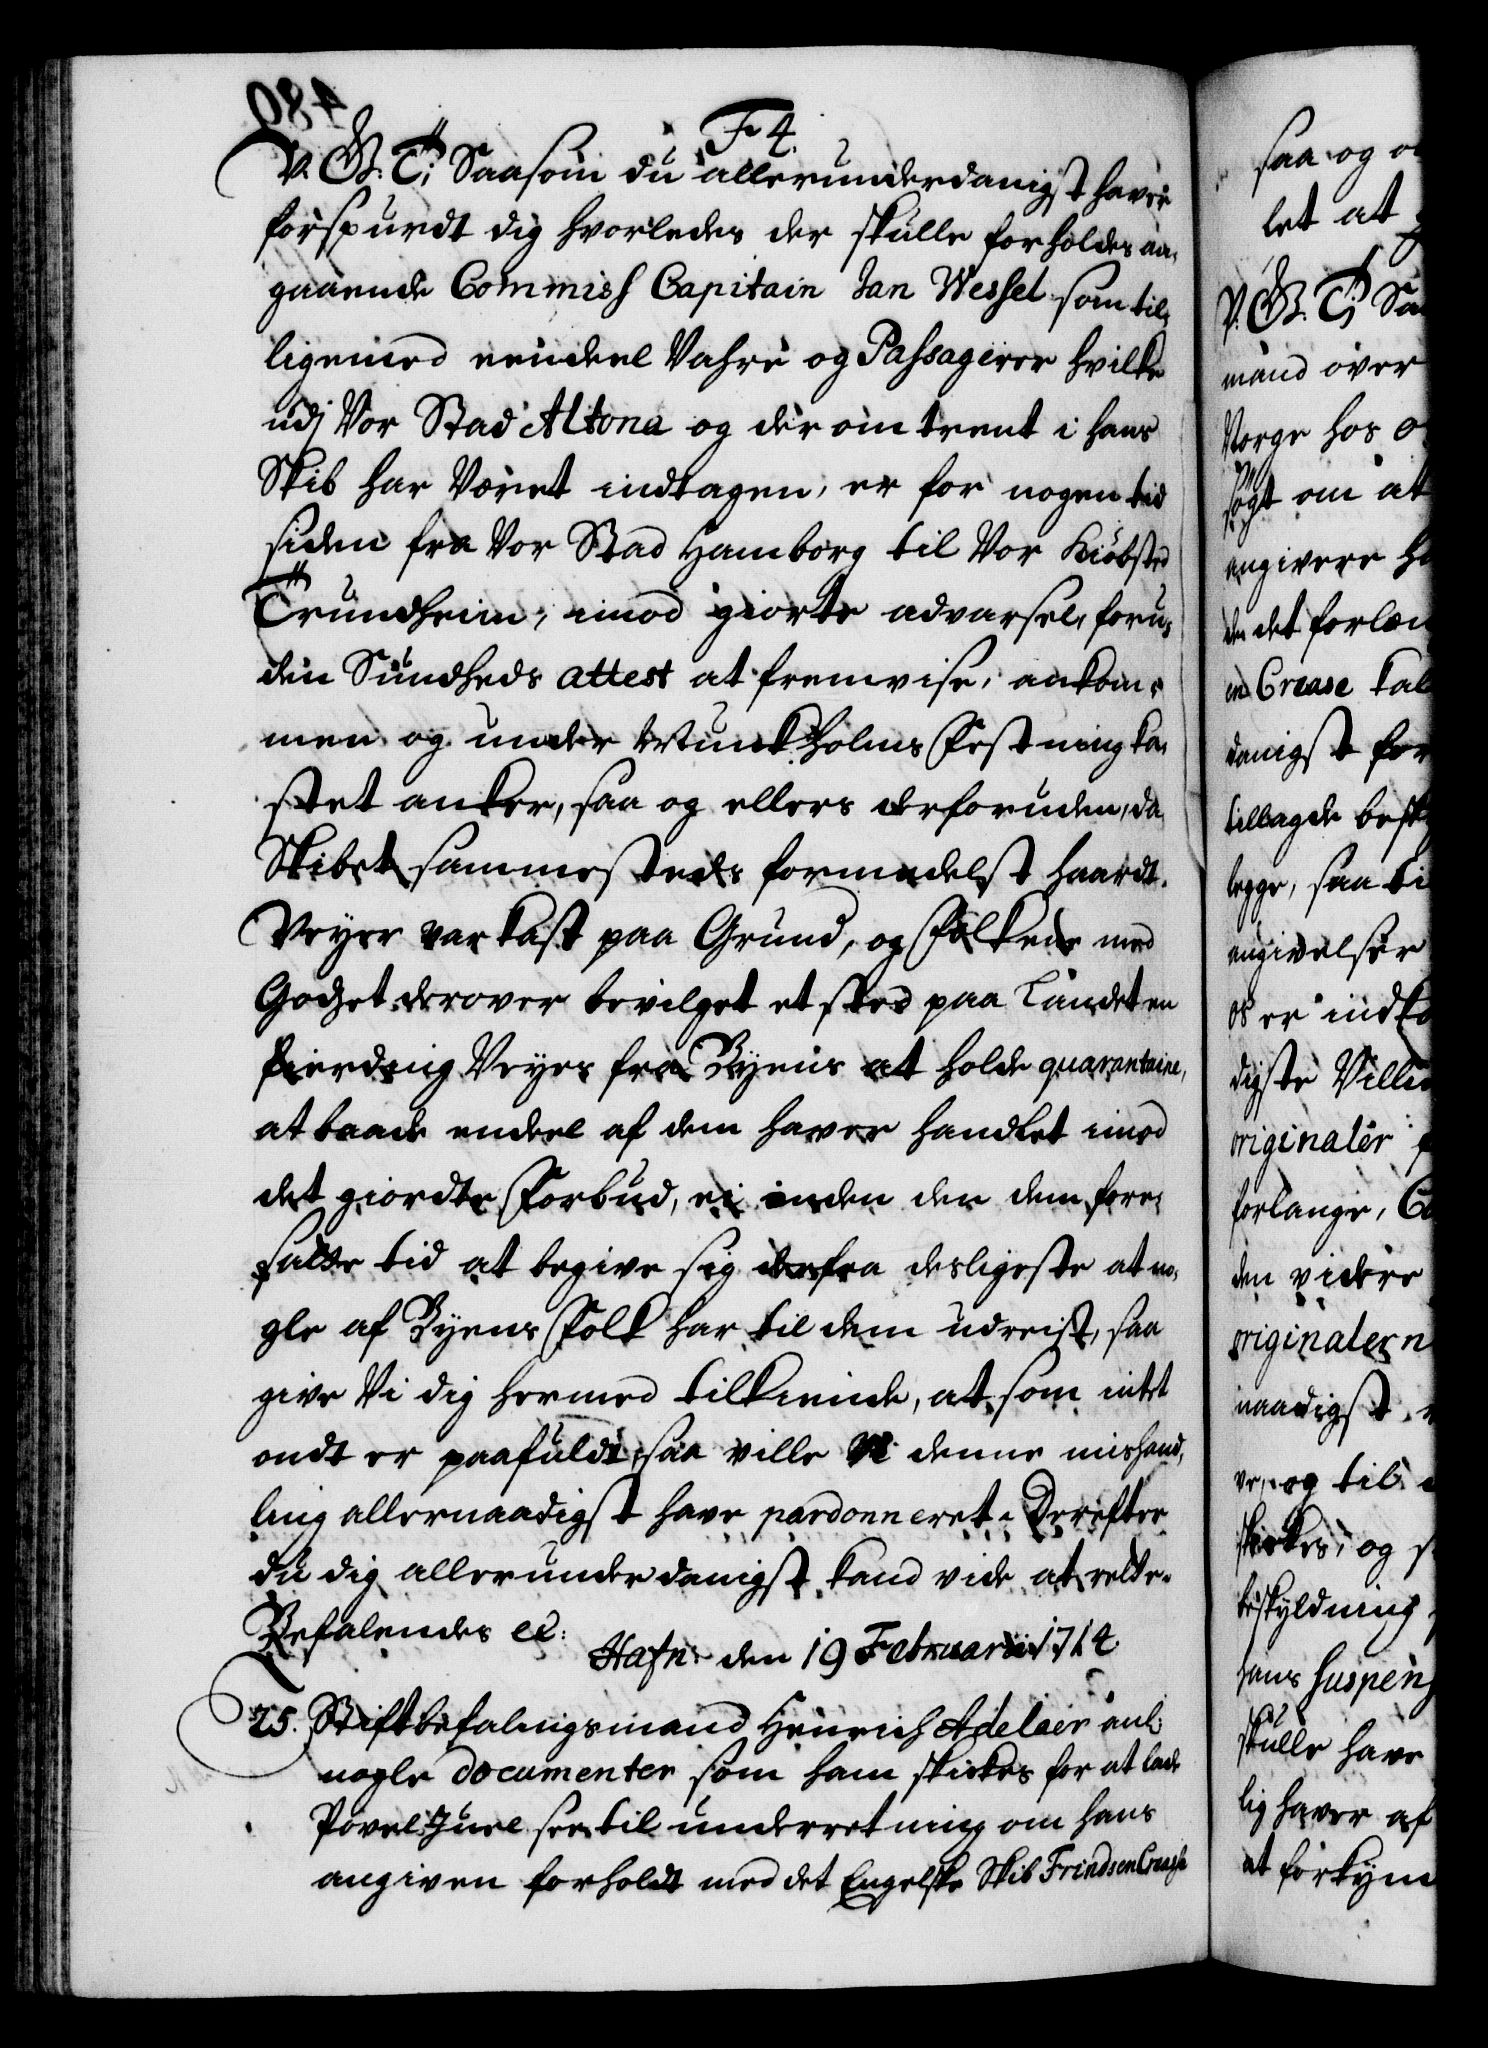 F 4.
V. G. T; Saasom du allerunderdanigst haver
forspurdt dig hvorledes der skulle forholdes an,
gaaende Commiss Capitain Jan Wessel som til,
ligemed eendeel Vahre og Passagerer hvilke
udj Vor Stad Altona og der omtrent i hans
Skib har Været indtagen, er for nogen tid
siden fra Vor Stad Hamborg til Vor Kiøbsted
Trundheim, imod giorte advarsel, foru,
den Sundheds attest at fremvise, ankom,
men og under Munkholms Festning ka,
stet anker, saa og ellers derforuden, da
Skibet sammesteds formedelst haardt
Veyer var kast paa Grund, og Folkene med
Godset derover bevilget et sted paa Landet en
Fierding Veyes fra Byens at holde quarantaine,
at baade endeel af dem haver handlet imod
det giordte Forbud, ei inden den dem fore,
satte tid at begive sig derfra desligeste at no,
gle af Byens Folk har til dem udreist, saa
give Vi dig hermed tilkiende, at som intet
ondt er paafuldt, saa ville Vi denne mishand,
ling allernaadigst have pardonneret. Derefter
du dig allerunderdanigst kand vide at rette.
Befalendes etc:
Hafn: den 19 Februarii 1714
25. Stiftbefalingsmand Henrich Adelaer anl:
nogle documenter som ham skikes for at lade
Povel Juel see til underretning om hans
angiven forholdt med det Engelske Skib Frindsen Creagh
saa og
let at
V. G. T; Saa
mand over
Norge hos
søgt om at
angivere
det forlæn
Crease kal
danigst for
tillagde besk
legge, saa ti
angivelser
os er indko
digste Villie
originaler
forlange,
den videre
originalern
naadigst
ve, og til
skikes, og
beskyldning
hans suspens
skulle have
lig haver af
at forkyn